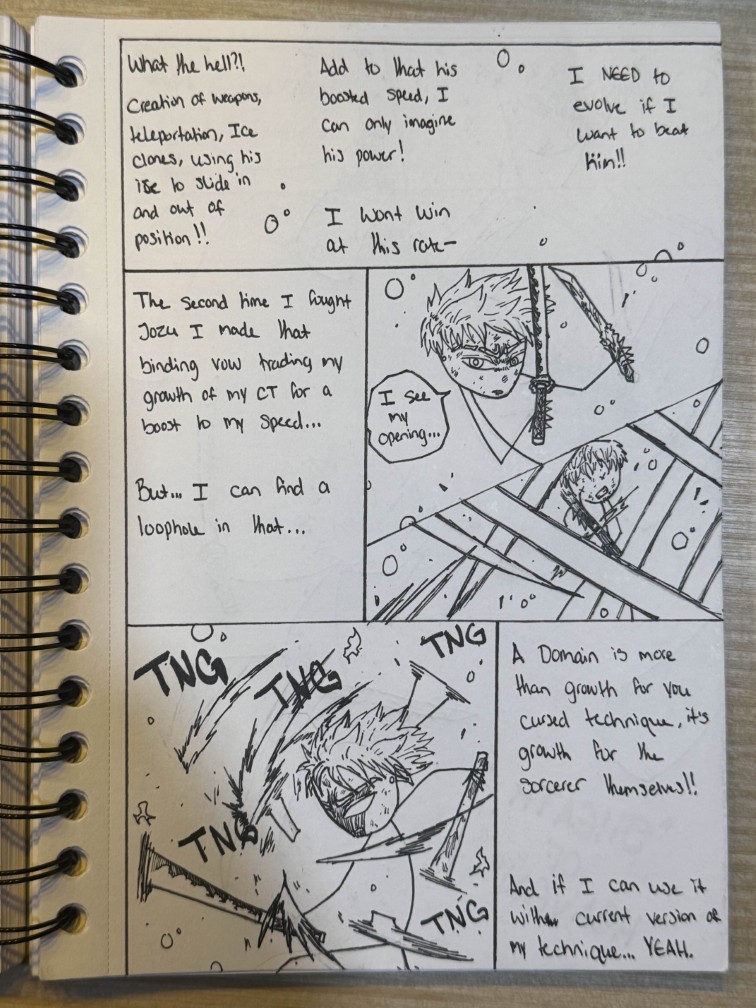 What the hell?!
Creation of weapons,
teleportation, Ice
clones, using his
ise to slide in
and out of
position!!
Add to that his
boosted speed, I
can only imagine
his power!
I wont win
at this rate-
I NEED to
evolve if I
want to beat
him!!
The second time I fought
Jozu I made that
binding vow trading my
growth of my CT for a
boost to my speed...
But... I can find a
loophole in that...
I see
my
opening...
TNG
TNG
TNG
TNG
TNG
A Domain is more
than growth for you
cursed technique, it's
growth for the
sorcerer themselves!!
And if I can use it
current version of
my technique... YEAH.